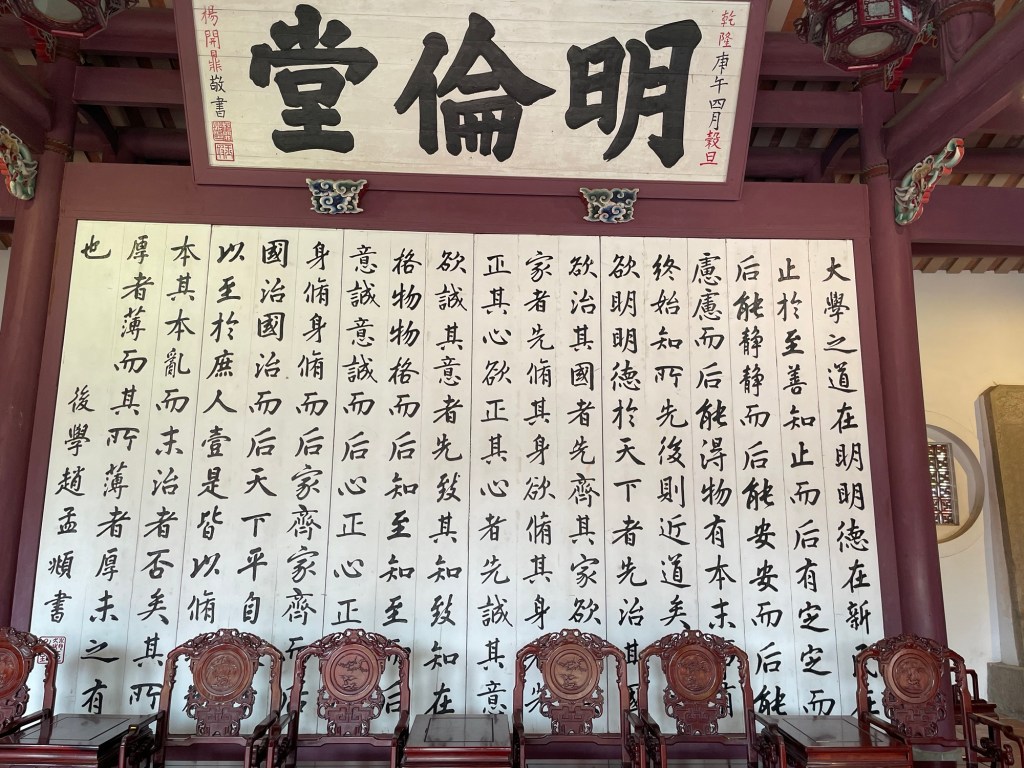 乾隆庚午四月穀旦
明倫堂
楊開鼎敬書
大學之道在明明德在新民在
止於至善知止而后有定定而
后能静静而后能安安而后能
慮慮而后能得物有本末有
終始知所先後則近道矣
欲明明德於天下者先治其國
欲治其國者先齊其家欲
家者先脩其身欲脩其身者先
正其心欲正其心者先誠其意
欲誠其意者先致其知致知在
格物物格而后知至知至而后
意誠意誠而后心正心正
身脩身脩而后家齊家齊而后
國治國治而后天下平自
以至於庶人壹是皆以脩
本其本亂而末治者否矣其所
厚者薄而其所薄者厚未之有
也
後學趙孟頫書